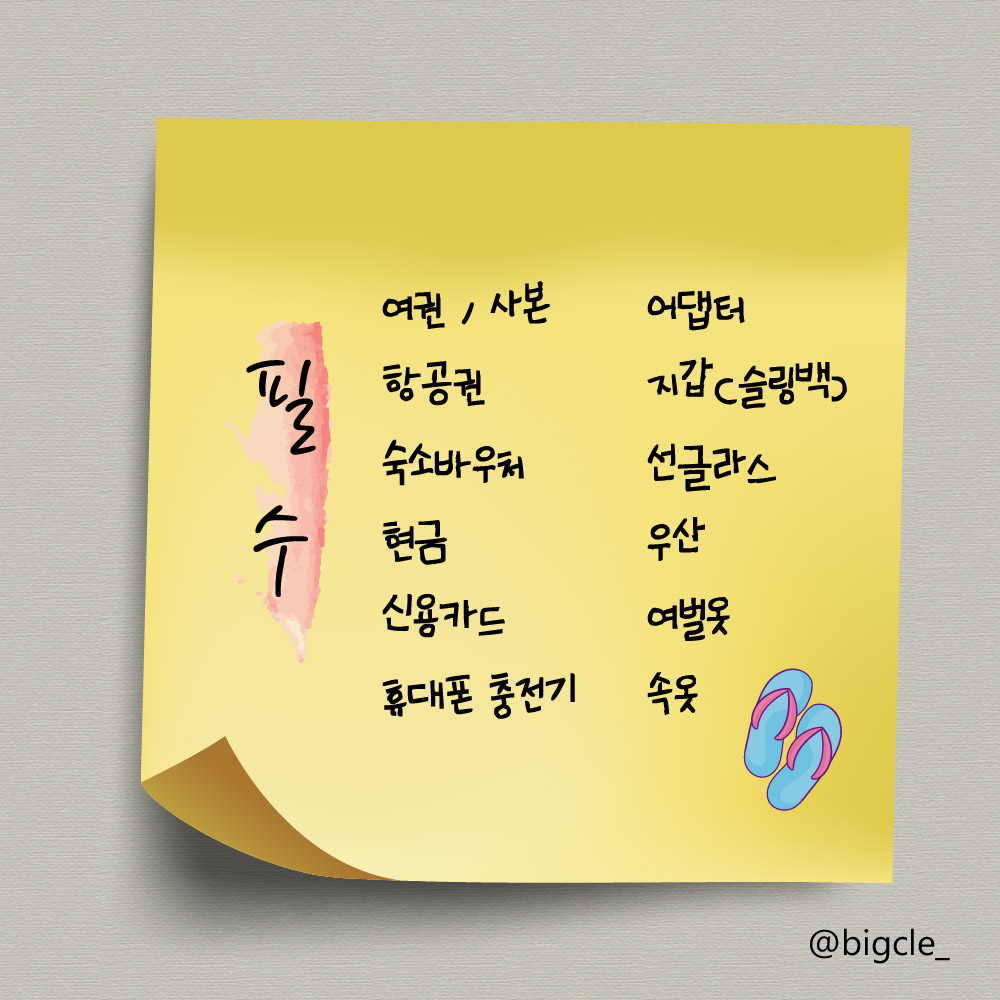 필
수
여권 / 사본
항공권
숙소바우처
현금
신용카드
휴대폰 충전기
어댑터
지갑(슬링백)
선글라스
우산
여벌옷
속옷
@bigcle_